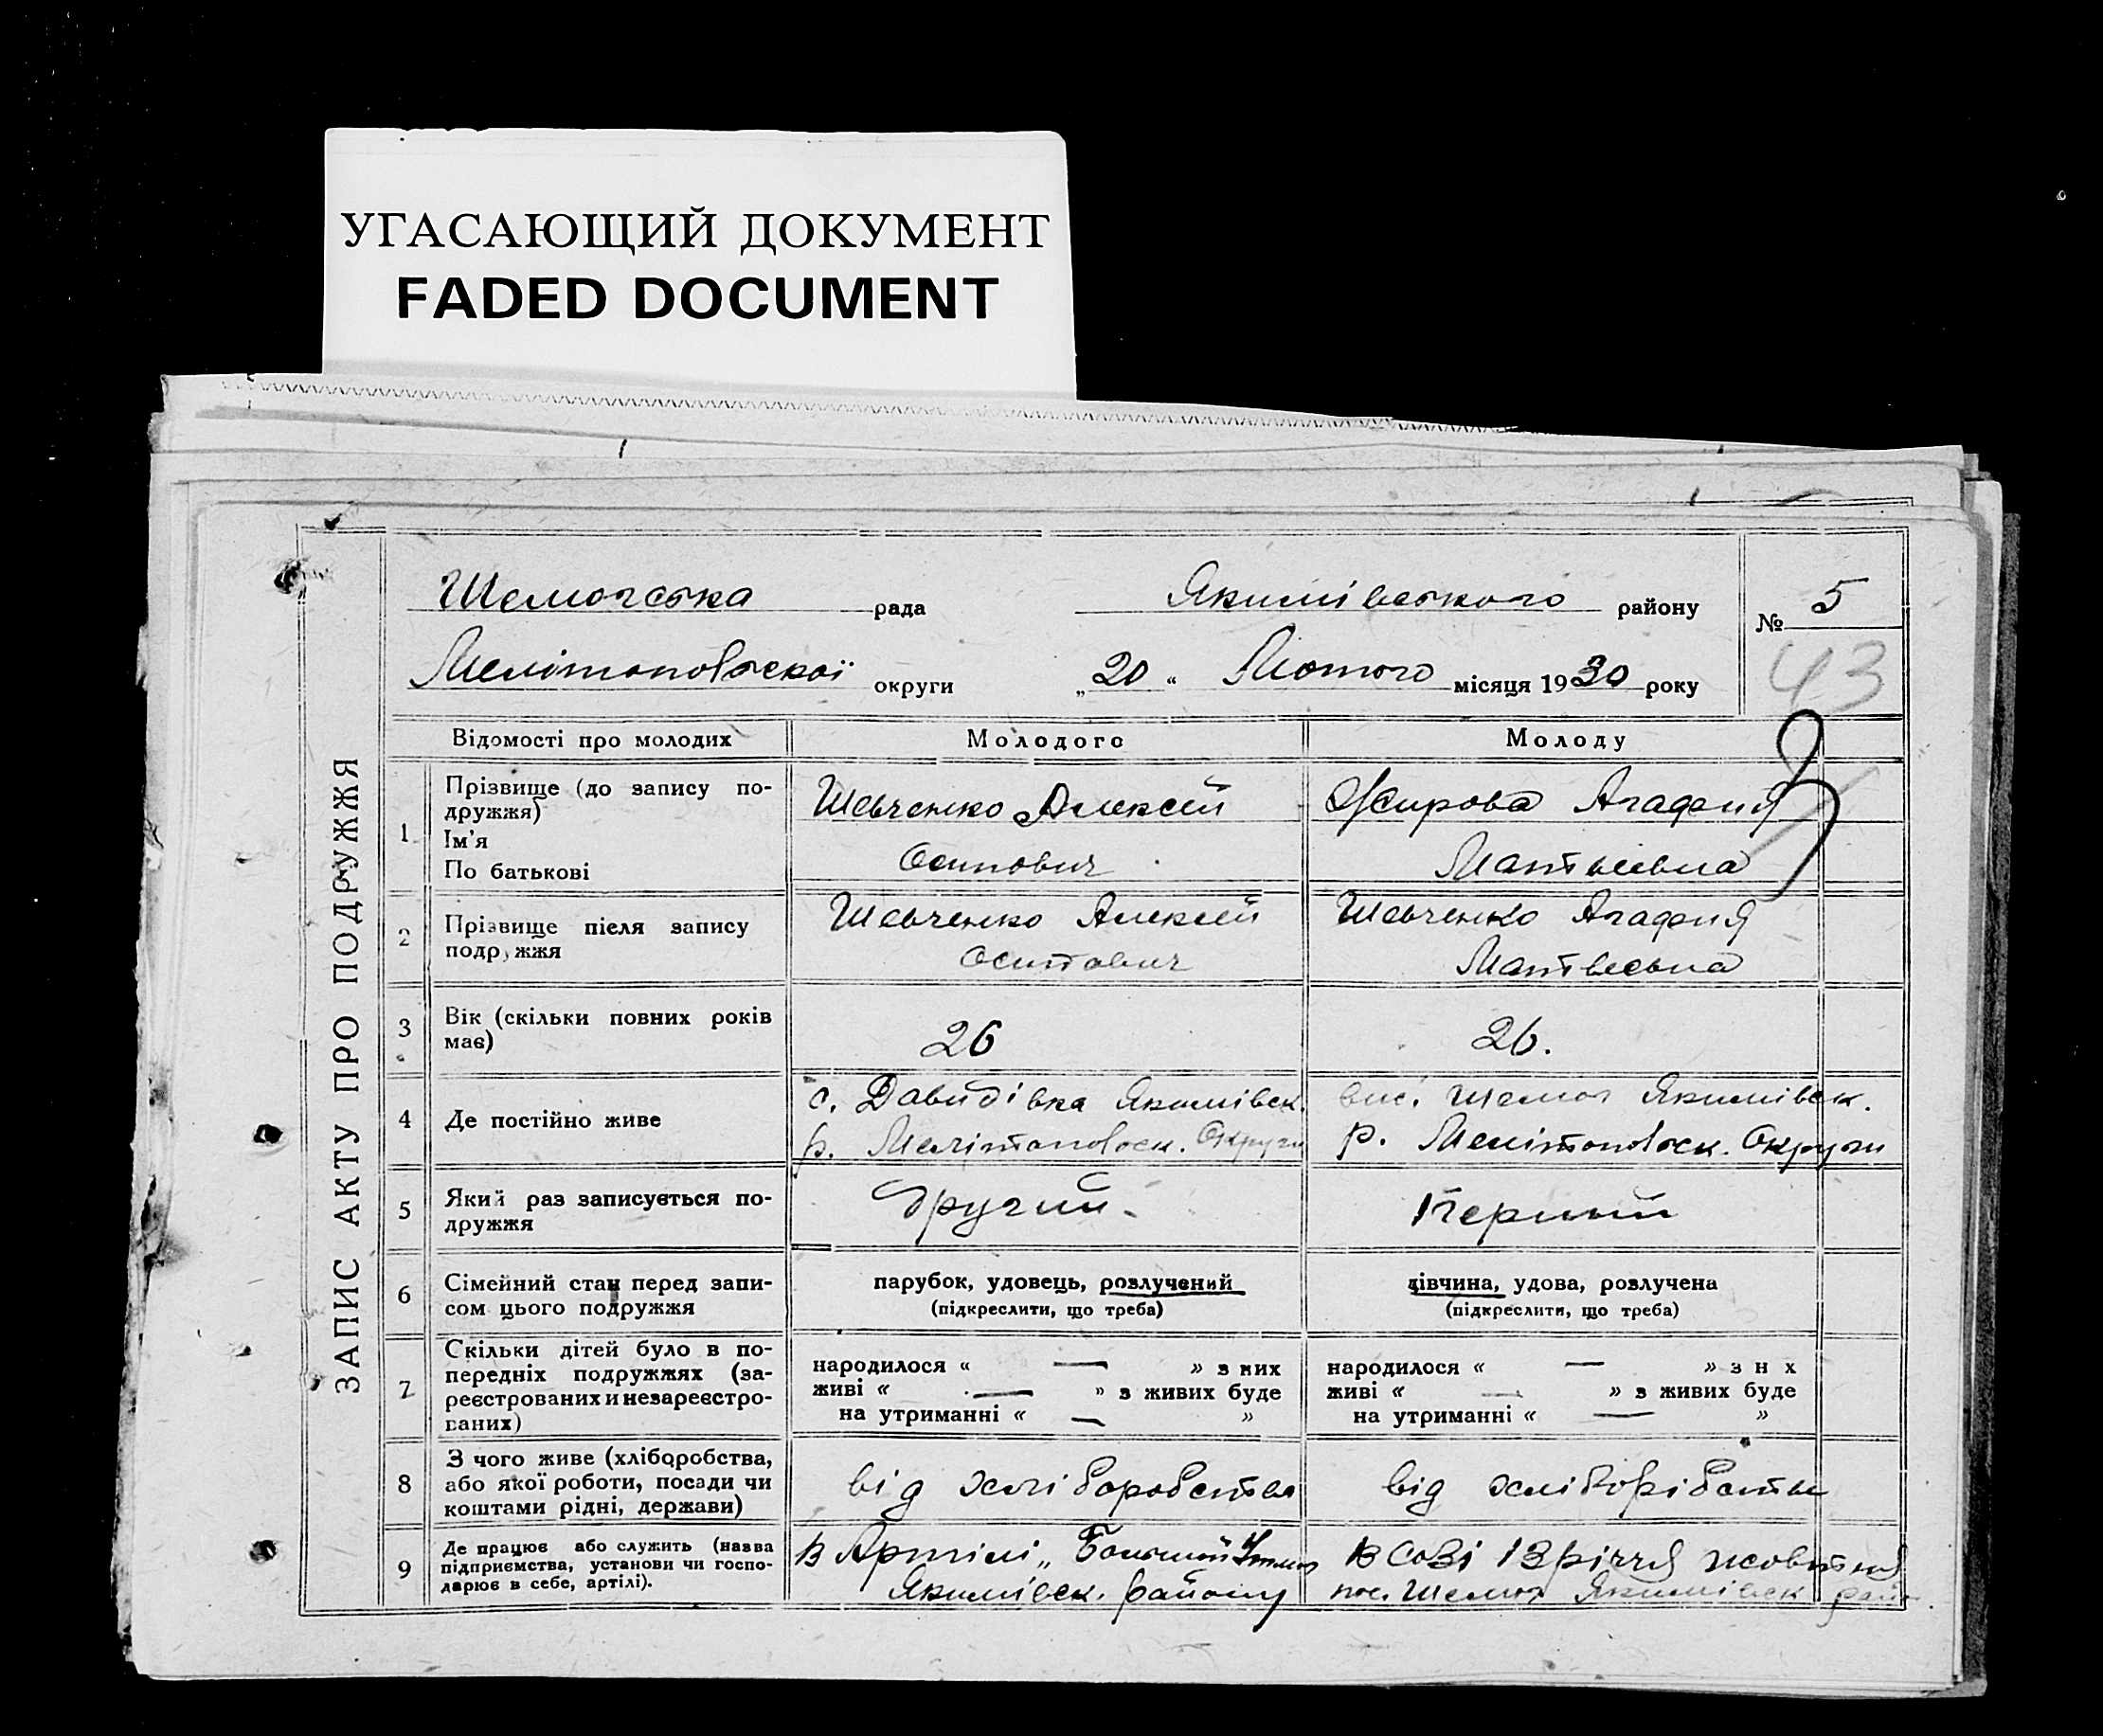 УГАСАЮЩИЙ ДОКУМЕНТ
FADED DOCUMENT
ЗАПИС АКТУ ПРО ПОДРУЖЖЯ
рада Якимівського району № 5
Мелітопольської округи „20“ Лютого місяця 1930 року 43
Відомості про молодих Молодого Молоду
1 Прізвище (до запису по-
дружжя)
Ім'я
По батькові
Шевченко Алексей
Осипович
Жирова Агафия
Матвеевна
2 Прізвище після запису
подружжя
Шевченко Алексей
Осипович
Шевченко Агафия
Матвеевна
3 Вік (скільки повних років
має)
26
26.
4 Де постійно живе
с. Давидівка Якимівськ.
р. Мелітопольськ. Округи
Якимівськ.
р. Мелітопольськ. Округи
5 Який раз записується по-
дружжя
Другий.
Перший
6 Сімейний стан перед запи-
сом цього подружжя
парубок, удовець, розлучений
(підкреслити, що треба)
дівчина, удова, розлучена
(підкреслити, що треба)
7 Скільки дітей було в по-
передніх подружжях (за-
реєстрованих и незареєстро-
ваних)
народилося « — » з них
живі « — » з живих буде
на утриманні « — »
народилося « — » з н х
живі « — » з живих буде
на утриманні « — »
8 З чого живе (хліборобства,
або якої роботи, посади чи
коштами рідні, держави)
від хліборобства
від хліборобства
9 Де працює або служить (назва
підприємства, установи чи госпо-
дарює в себе, артілі).
В Артілі „
Якимівськ. району
В Созі 13 річчя жовтня
пос. Якимівськ